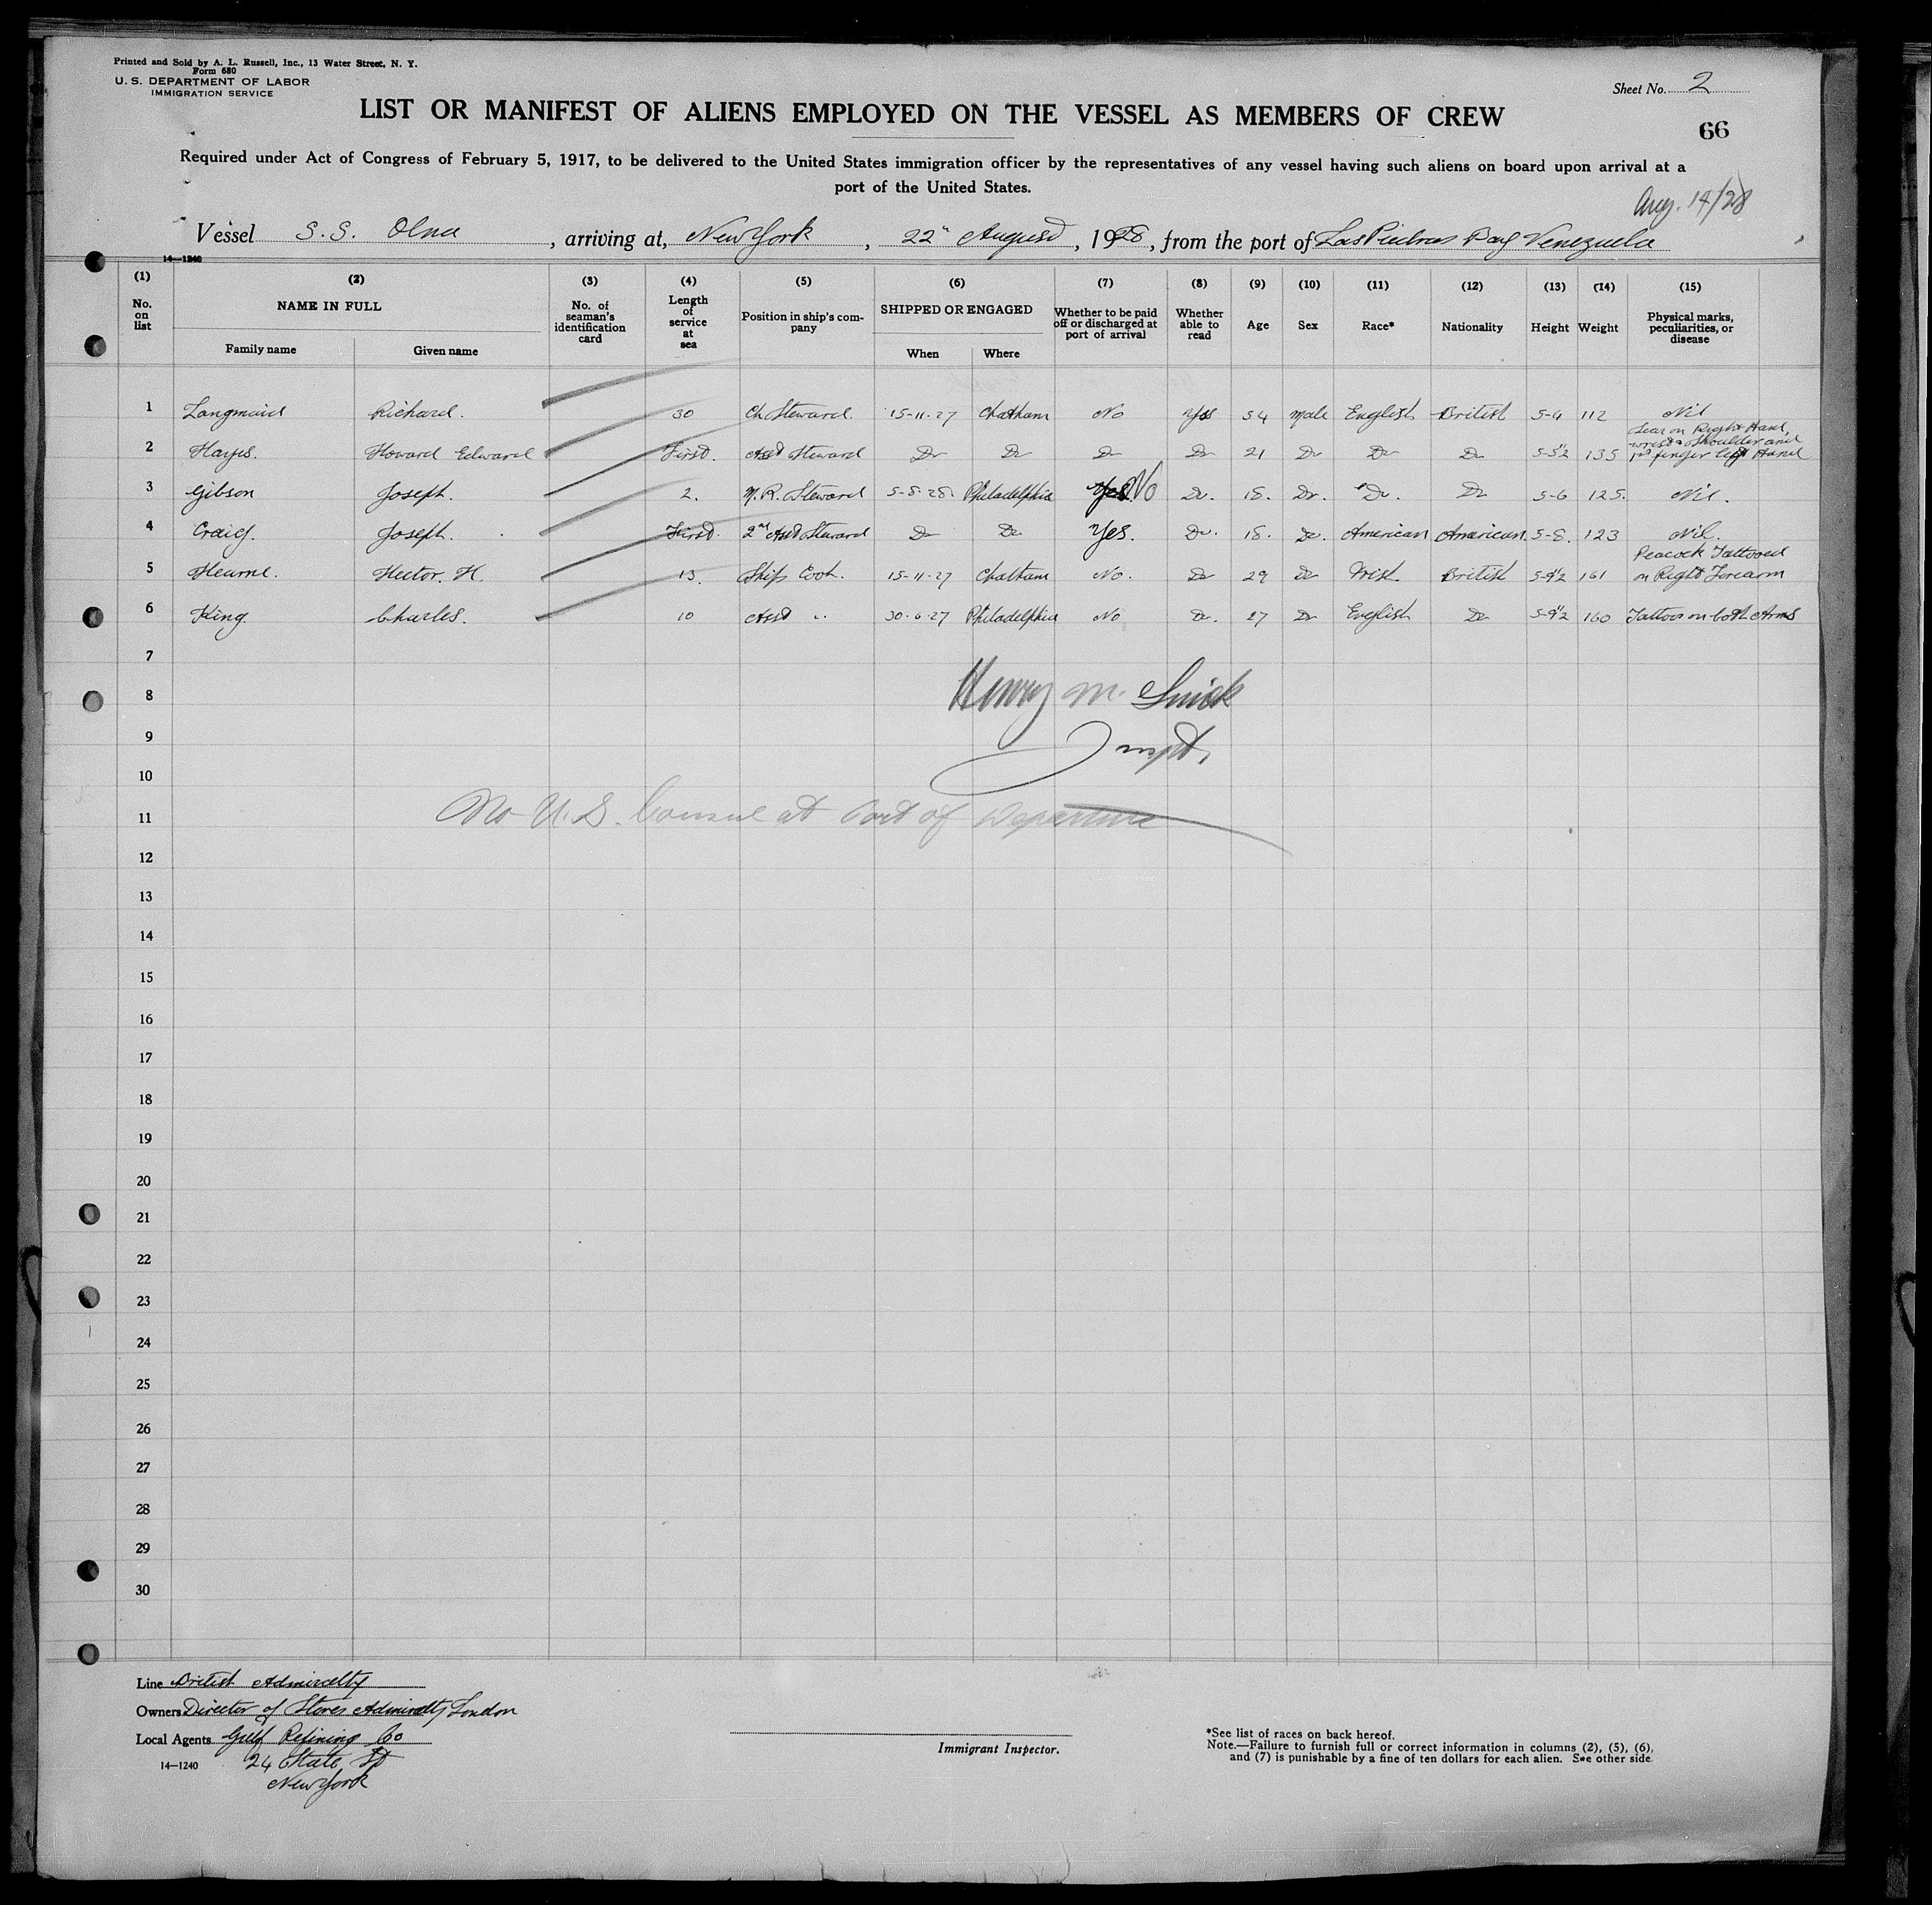 Printed and Sold by A. L. Russell, Inc., 13 Water Street, N. Y.
Form 680
U. S. DEPARTMENT OF LABOR
IMMIGRATION SERVICE
Sheet No. 2
LIST OR MANIFEST OF ALIENS EMPLOYED ON THE VESSEL AS MEMBERS OF CREW
66
Required under Act of Congress of February 5, 1917, to be delivered to the United States immigration officer by the representatives of any vessel having such aliens on board upon arrival at a
port of the United States.
Aug. 14/28
Vessel S.S. Olna, arriving at, New York, 22" August, 1928, from the port of Las Piedras Bay Venezuela
14—1240
(1) (2) (3) (4) (5) (6) (7) (8) (9) (10) (11) (12) (13) (14) (15)
No. on list NAME IN FULL No. of seaman's identification card Length of service at sea Position in ship's company SHIPPED OR ENGAGED Whether to be paid off or discharged at port of arrival Whether able to read Age Sex Race* Nationality Height Weight Physical marks, peculiarities, or disease
Family name Given name When Where
1 Langmaid Richard. 30 Ch. Steward. 15-11-27 Chatham No Yes 54 Male English British 5-4 112 Nil
2 Hayes. Howard Edward First. Asst Steward Do Do Do Do 21 Do Do Do 5-5½ 135 Scar on Right Hand, wrist & Shoulder and 1st finger left Hand
3 Gibson Joseph. 2. M.R. Steward 5-8-28 Philadelphia Yes No Do. 18. Do. Do. Do 5-6 125. Nil.
4 Craig. Joseph. First. 2nd Asst Steward Do Do Yes. Do. 18. Do. American American 5-8. 123 Nil.
5 Hearne. Hector. H. 13. Ships Cook. 15-11-27 Chatham No. Do 29 Do Irish. British 5-9½ 161 Peacock Tattooed on Right Forearm
6 King. Charles. 10 Asst " 30-6-27 Philadelphia No Do. 27 Do English Do 5-9½ 160 Tattoos on both Arms
7
8 Henry M.
9 Inspt.
10
11 No U.S. Consul at Port of Departure
12
13
14
15
16
17
18
19
20
21
22
23
24
25
26
27
28
29
30
Line British Admiralty
Owners Director of Stores Admiralty London
Local Agents Gulf Refining Co
24 State St
New York
14—1240
Immigrant Inspector.
*See list of races on back hereof.
Note.—Failure to furnish full or correct information in columns (2), (5), (6),
and (7) is punishable by a fine of ten dollars for each alien. See other side.